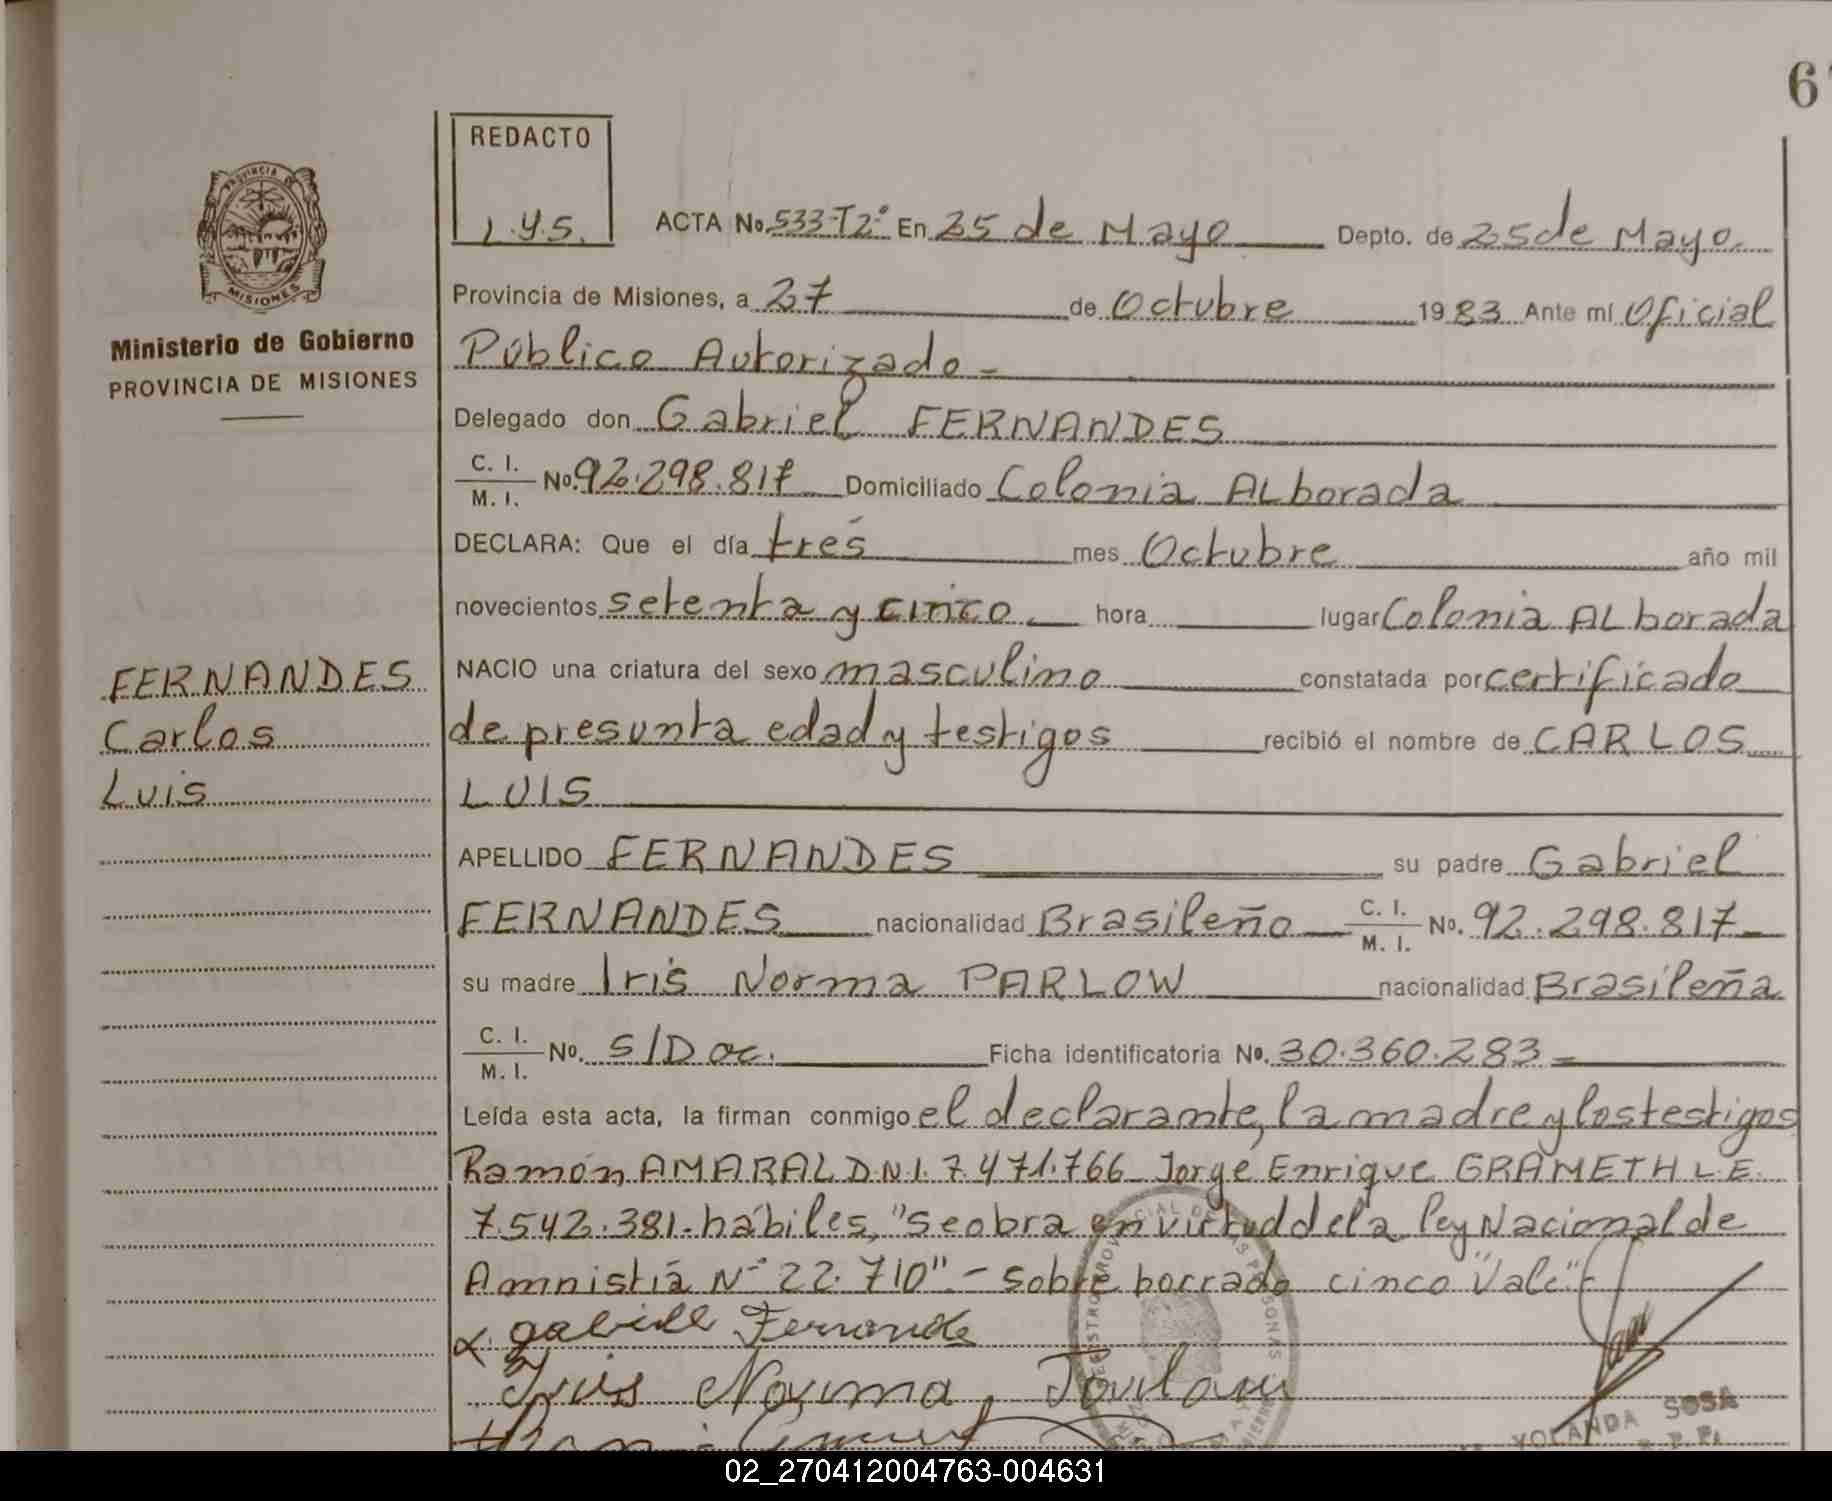 6
REDACTO
I.Y.S.
PROVINCIA DE
MISIONES
Ministerio de Gobierno
PROVINCIA DE MISIONES
ACTA No. 533-T2° En 25 de Mayo Depto. de 25 de Mayo
Provincia de Misiones, a 27 de Octubre 1983 Ante mí Oficial
Público Autorizado -
Delegado don Gabriel FERNANDES
C. I.
M. I. No. 92.298.817 Domiciliado Colonia ALborada
DECLARA: Que el día tres mes Octubre año mil
novecientos setenta y cinco hora lugar Colonia ALborada
NACIO una criatura del sexo masculino constatada por certificado
de presunta edad y testigos recibió el nombre de CARLOS
LUIS
FERNANDES
Carlos
Luis
APELLIDO FERNANDES su padre Gabriel
FERNANDES nacionalidad Brasileño C. I. M. I. No. 92.298.817
su madre Iris Norma PARLOW nacionalidad Brasileña
C. I.
M. I. No. S/Doc. Ficha identificatoria No. 30.360.283
Leída esta acta, la firman conmigo el declarante, la madre y los testigos
Ramón AMARAL D.N.I. 7.471.766 Jorge Enrique GRAMETH L.E.
7.542.381. hábiles, "se obra en virtud de la ley Nacional de
Amnistía N° 22.710" - sobre borrado cinco "Vale"
gabriel Fernande
Iris Norma,
YOLANDA SOSA
02_270412004763-004631